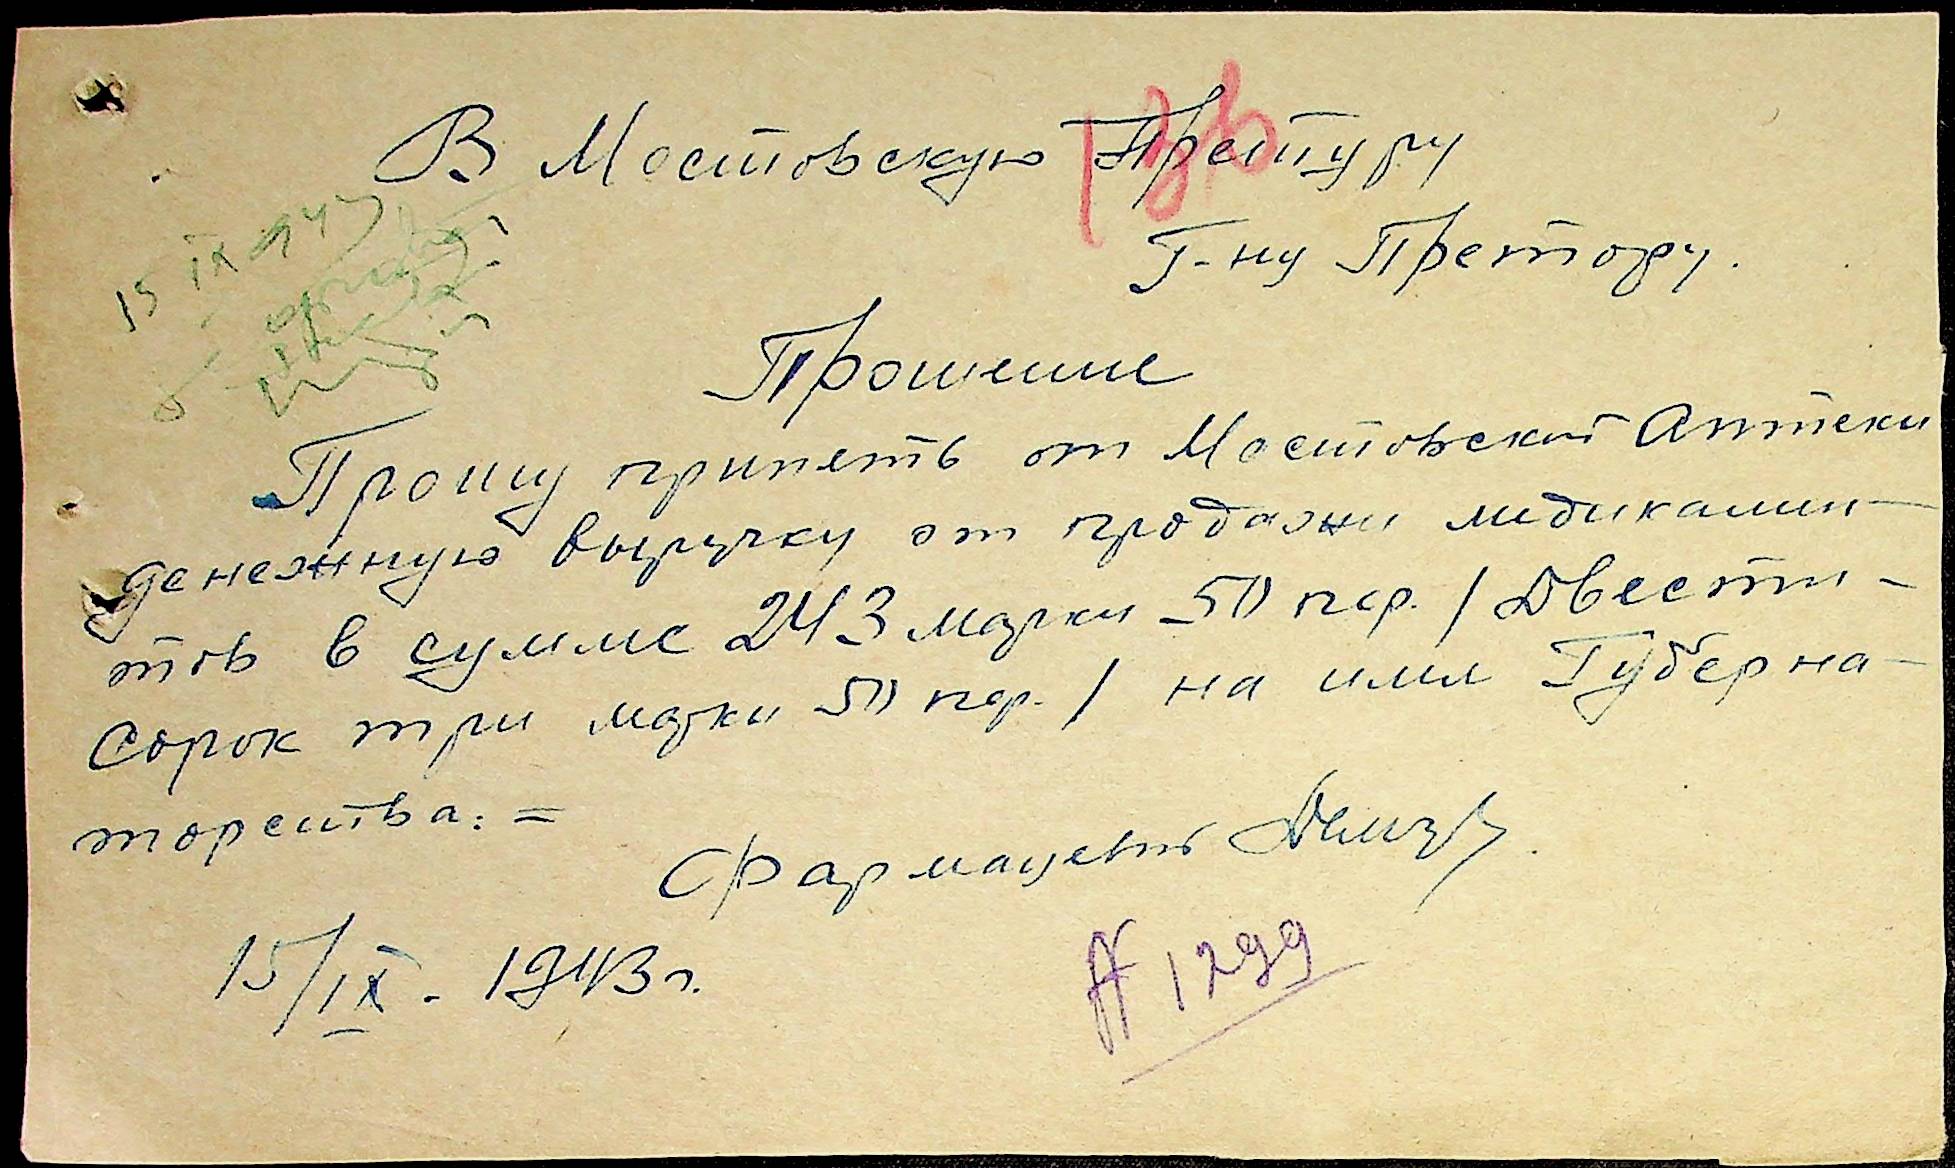 В Мостовскую Претуру
Г-ну Претору.
15 IX 943
Прошение
Прошу принеть от Мостовской Аптеки
денежную выручку от продажи медикамин-
тов в сумме 243 марки 50 пф. / Двести-
сорок три марки 50 пф. / на имя Губерна-
торства. =
Фармацевт
15/IX - 1943 г.
№ 1299